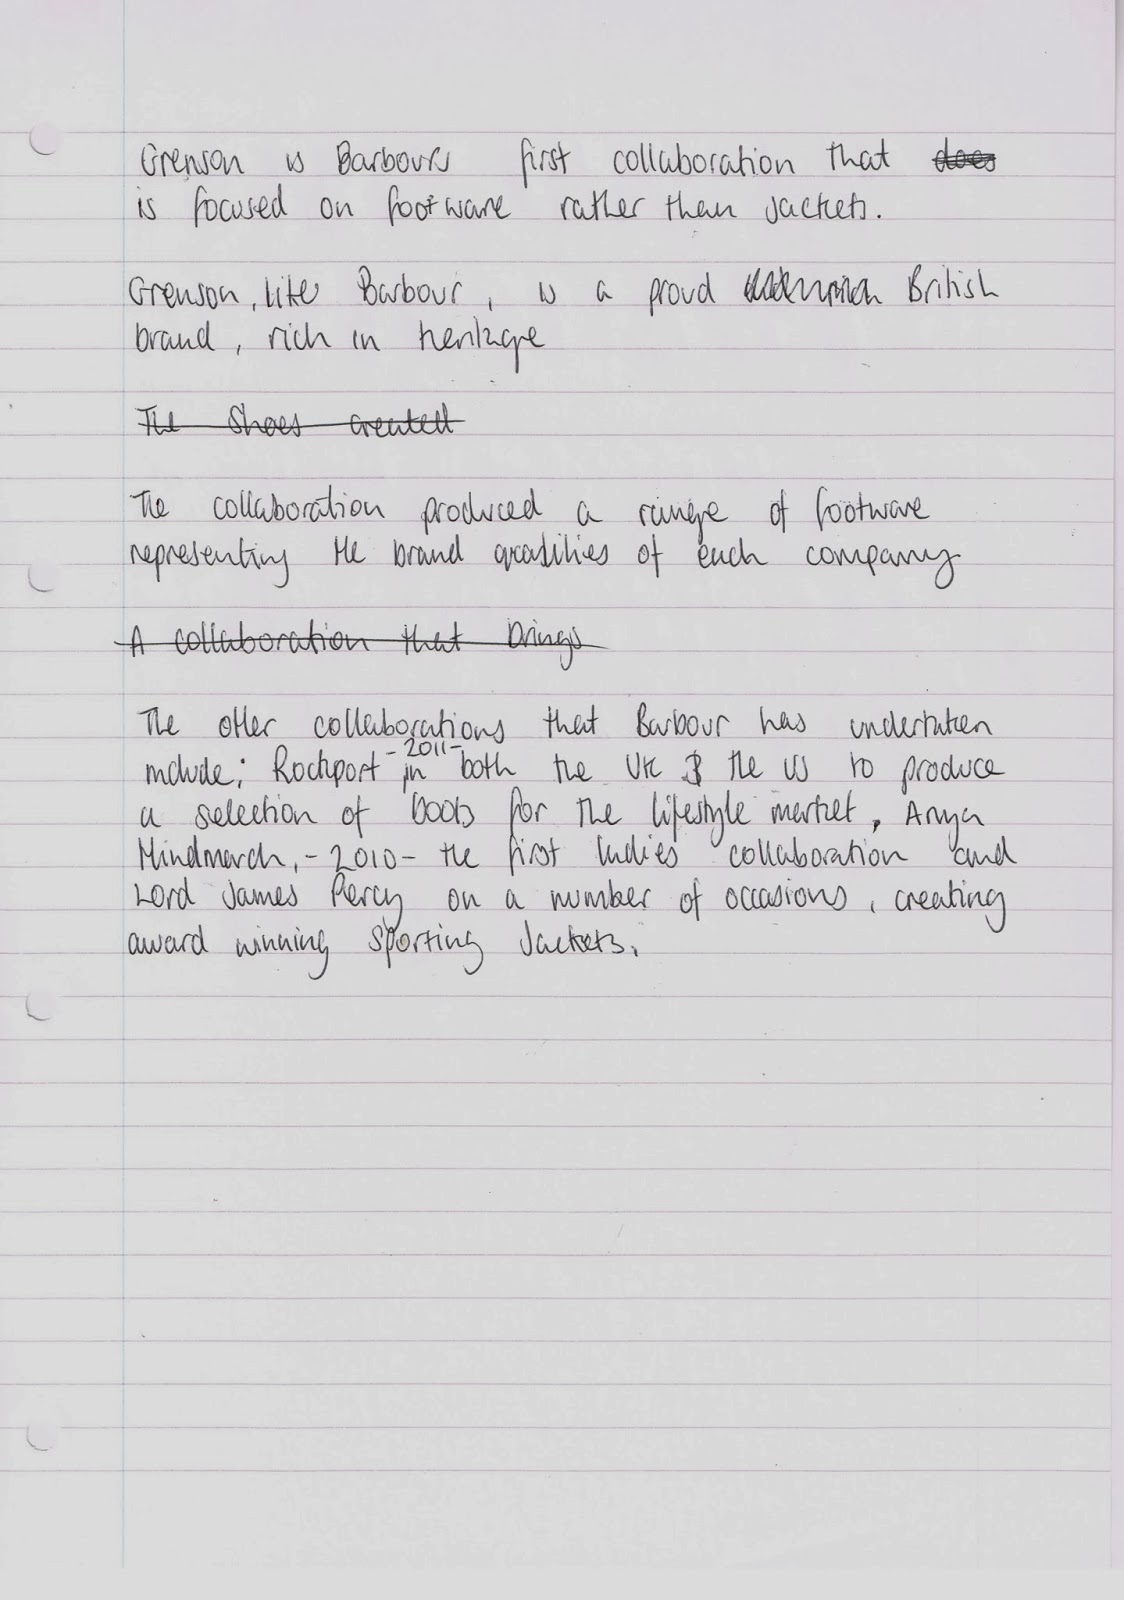 Grenson is Barbours first collaboration that does
is focused on footware rather than jackets.
Grenson, like Barbour, is a proud British
brand, rich in heritage
The shoes created
The collaboration produced a range of footware
representing the brand qualities of each company
A collaboration that brings
The other collaborations that Barbour has undertaken
-2011-
include; Rockport in both the UK & the US to produce
a selection of boots for the lifestyle market, Anya
Hindmarch, - 2010 - the first ladies collaboration and
Lord James Percy on a number of occasions, creating
award winning sporting jackets.